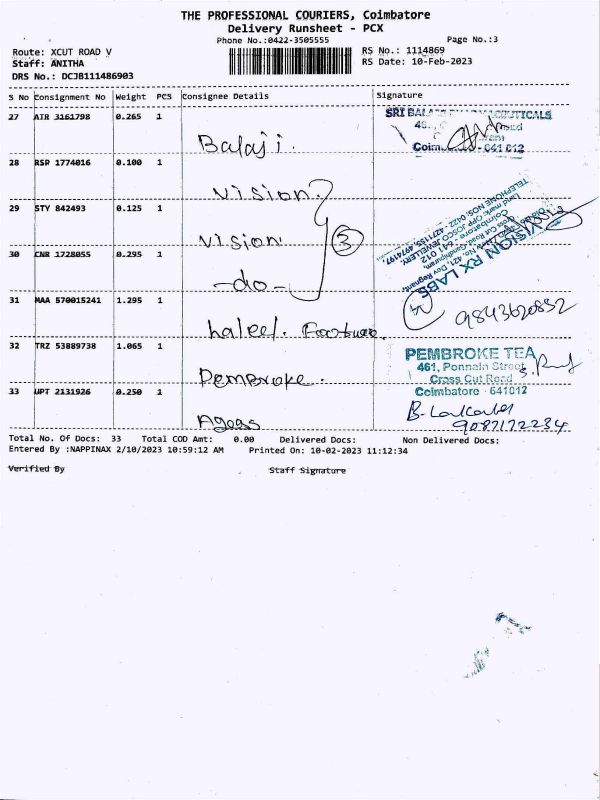 THE PROFESSIONAL COURIERS, Coimbatore
Delivery Runsheet - PCX
Phone No.:0422-3505555
Page No.:3
Route: XCUT ROAD V
RS No.: 1114869
Staff: ANITHA
RS Date: 10-Feb-2023
DRS No.: DCJB111486903
S No Consignment No Weight PCS Consignee Details Signature
27 ATR 3161798 0.265 1
Balaji.
SRI CEUTICALS
Coim - 641 012
28 RSP 1774016 0.100 1
vision
29 STY 842493 0.125 1
vision
3
30 CNR 1728055 0.295 1
-do-
VISION RX LABS
No. 421, Dev Regnant,
Cross Cut Road, Gandhipuram,
Coimbatore - 641 012.
Land mark: OPP JOSCO JEWELLERY,
TELEPHONE NOS: 0422- 4271155, 4974197.
31 MAA 570015241 1.295 1
Footwear.
9843620832
32 TRZ 53889738 1.065 1
Pembroke.
PEMBROKE TEA
461, Ponnain Street
Cross Cut Road
Coimbatore - 641012
33 UPT 2131926 0.250 1
9087172234
Total No. Of Docs: 33 Total COD Amt: 0.00 Delivered Docs: Non Delivered Docs:
Entered By :NAPPINAX 2/10/2023 10:59:12 AM Printed On: 10-02-2023 11:12:34
Verified By Staff Signature